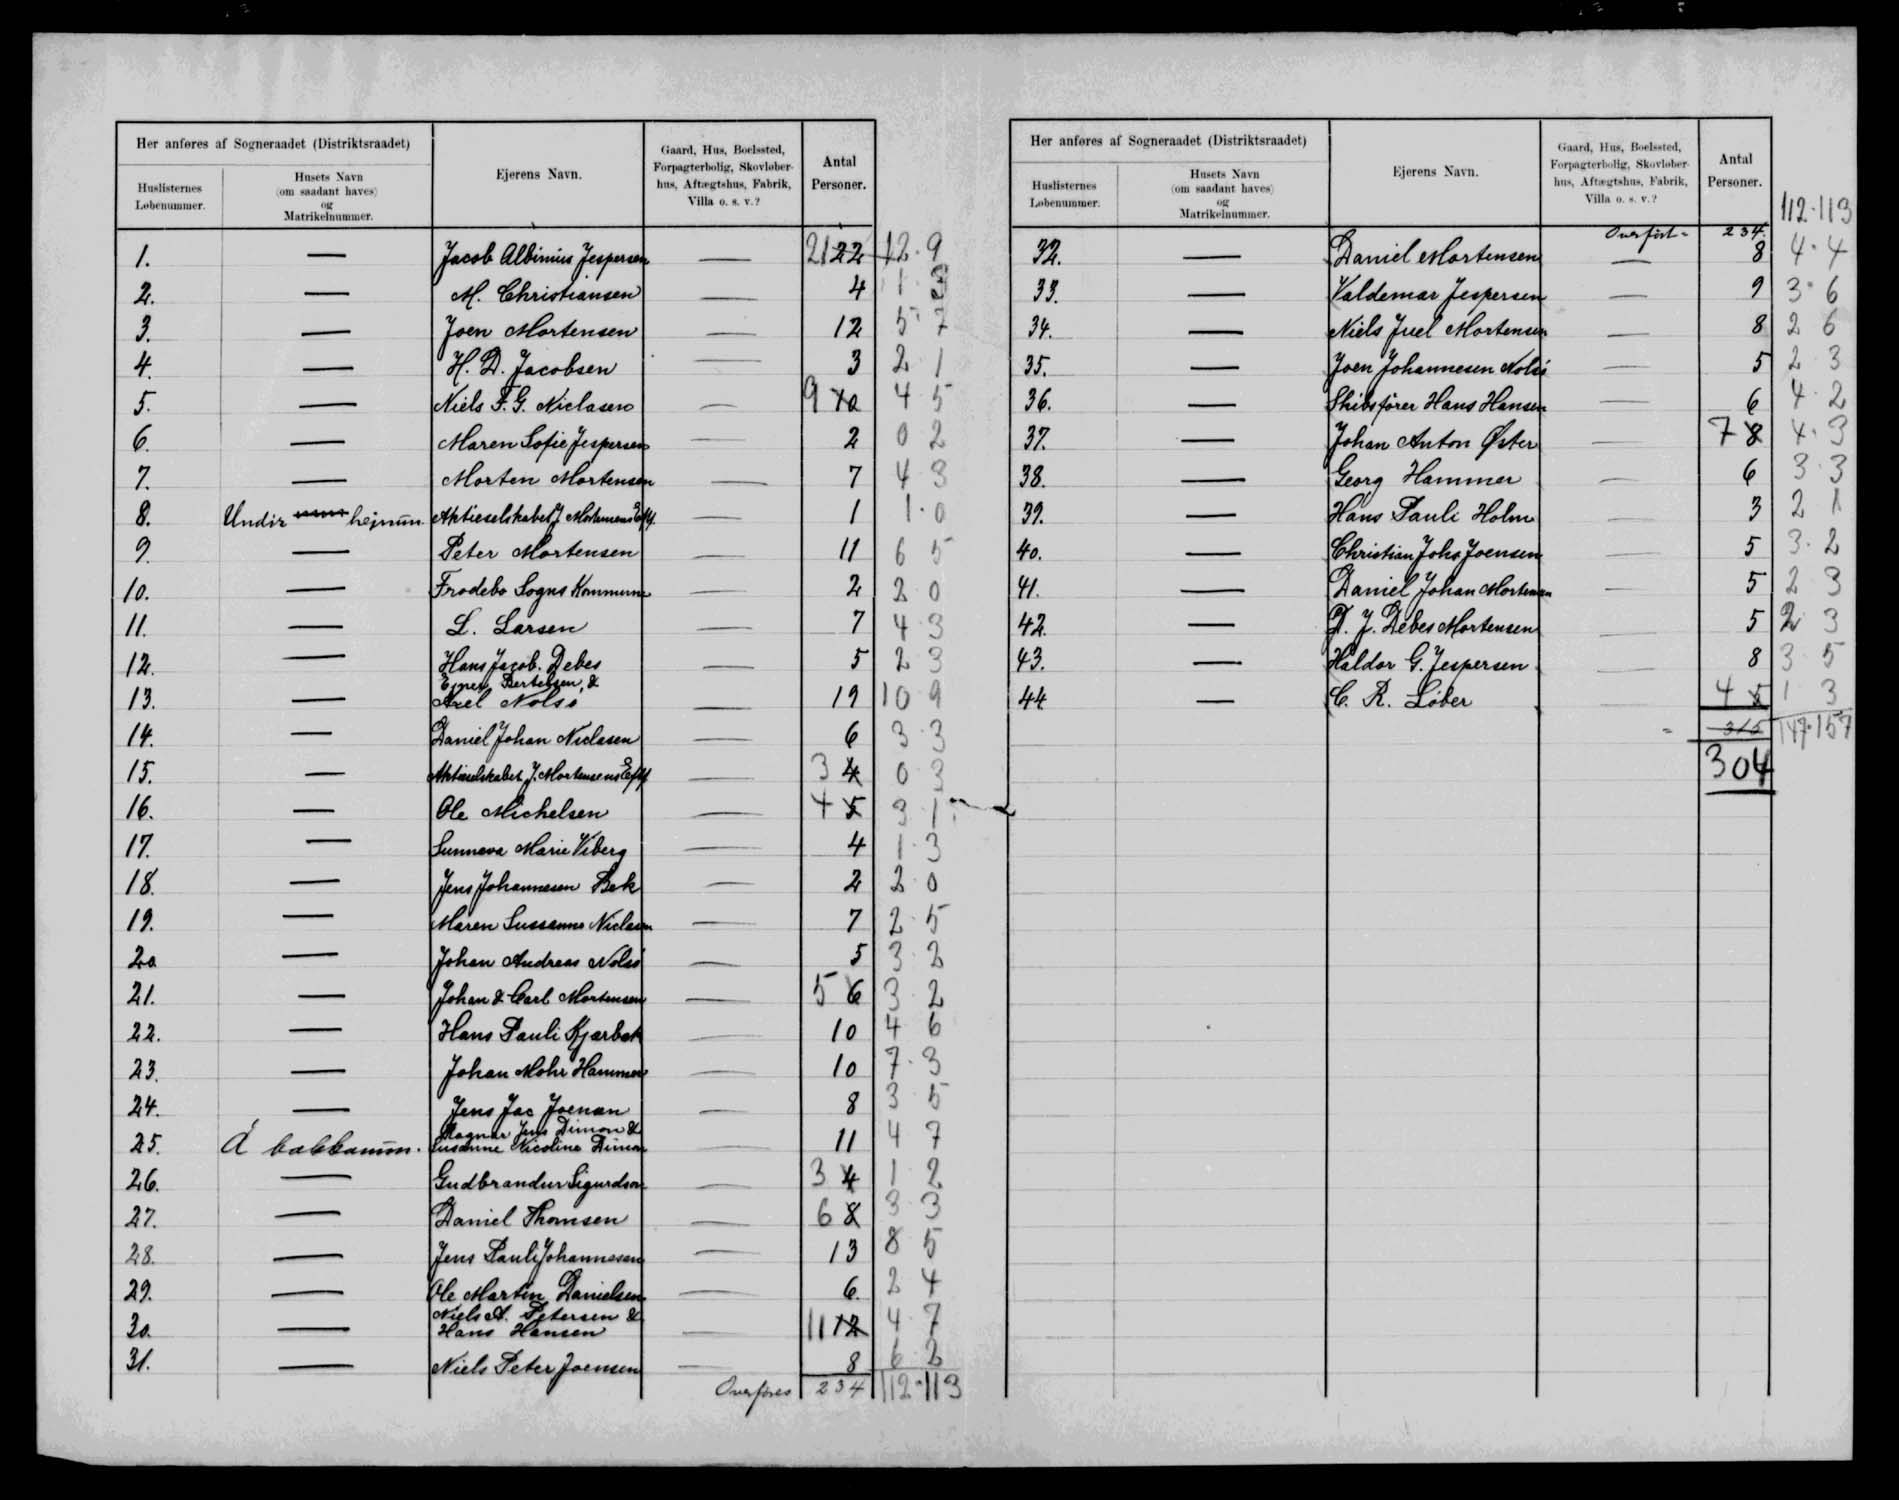 Her anføres af Sogneraadet (Distriktsraadet)
Huslisternes Løbenummer.
Husets Navn (om saadant haves) og Matrikelnummer.
Ejerens Navn.
Gaard, Hus, Boelssted, Forpagterbolig, Skovløberhus, Aftægtshus, Fabrik, Villa o. s. v.?
Antal Personer.
1. — Jacob Albinius Jespersen — 21 22 12 · 9
2. — M. Christiansen — 4 1 · 3
3. — Joen Mortensen — 12 5 · 7
4. — H. D. Jacobsen — 3 2 · 1
5. — Niels F. G. Niclasen — 9 10 4 5
6. — Maren Sofie Jespersen — 2 0 2
7. — Morten Mortensen — 7 4 · 3
8. Undir hejnun Aktieselskabet J. Mortensens Eftf. — 1 1 · 0
9. — Peter Mortensen — 11 6 5
10. — Frodebo Sogns Kommune — 2 2 · 0
11. — L. Larsen — 7 4 · 3
12. — Hans Jacob Debes — 5 2 3
13. — Ejner Bertelsen, &
Axel Nolsø 19 10 9
14. — Daniel Johan Niclasen — 6 3 · 3
15. — Aktieselskabet J. Mortensens Eftf — 3 4 0 · 3
16. — Ole Michelsen — 4 5 3 1
17. — Sunneva Marie Viberg — 4 1 · 3
18. — Jens Johannesen Bek — 2 2 · 0
19. — Maren Sussanne Niclasen — 7 2 · 5
20 — Johan Andreas Nolsø — 5 3 · 2
21. — Johan & Carl Mortensen — 5 6 3 2
22. — Hans Pauli Kjærbek — 10 4 6
23. — Johan Mohr Hammer — 10 7 · 3
24. — Jens Jac Joensen — 8 3 · 5
25. Á bakkanum. Ragnar Jens Dimon &
Susanne Nicoline Dimon — 11 4 7
26. — Gudbrandur Sigurdson — 3 4 1 · 2
27. — Daniel Thomsen — 6 8 3 · 3
28. — Jens Pauli Johannesen — 13 8 5
29. — Ole Martin Danielsen — 6. 2 4
30. — Niels A. Petersen &
Hans Hansen — 11 12 4 · 7
31. — Niels Peter Joensen — 8 6 2
Overføres 234 112 · 113
Her anføres af Sogneraadet (Distriktsraadet)
Huslisternes Løbenummer.
Husets Navn (om saadant haves) og Matrikelnummer.
Ejerens Navn.
Gaard, Hus, Boelssted, Forpagterbolig, Skovløberhus, Aftægtshus, Fabrik, Villa o. s. v.?
Antal Personer.
112 · 113
Overført = 234.
32. — Daniel Mortensen — 8 4 · 4
33. — Valdemar Jespersen — 9 3 · 6
34. — Niels Juel Mortensen — 8 2 6
35. — Joen Johannesen Nolsø — 5 2 · 3
36. — Skibsfører Hans Hansen — 6 4 · 2
37. — Johan Anton Øster — 7 8 4 · 3
38. — Georg Hammer — 6 3 · 3
39. — Hans Pauli Holm — 3 2 1
40. — Christian Johs Joensen — 5 3 · 2
41. — Daniel Johan Mortensen — 5 2 3
42. — D. J. Debes Mortensen — 5 2 · 3
43. — Haldor G. Jespersen — 8 3 · 5
44 — C. R. Løber — 4 5 1 3
= 315 147 · 157
304